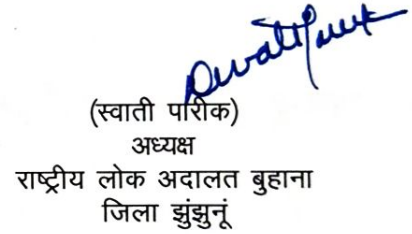 (स्वाती पारीक)
अध्यक्ष
राष्ट्रीय लोक अदालत बुहाना
जिला झुंझुनूं